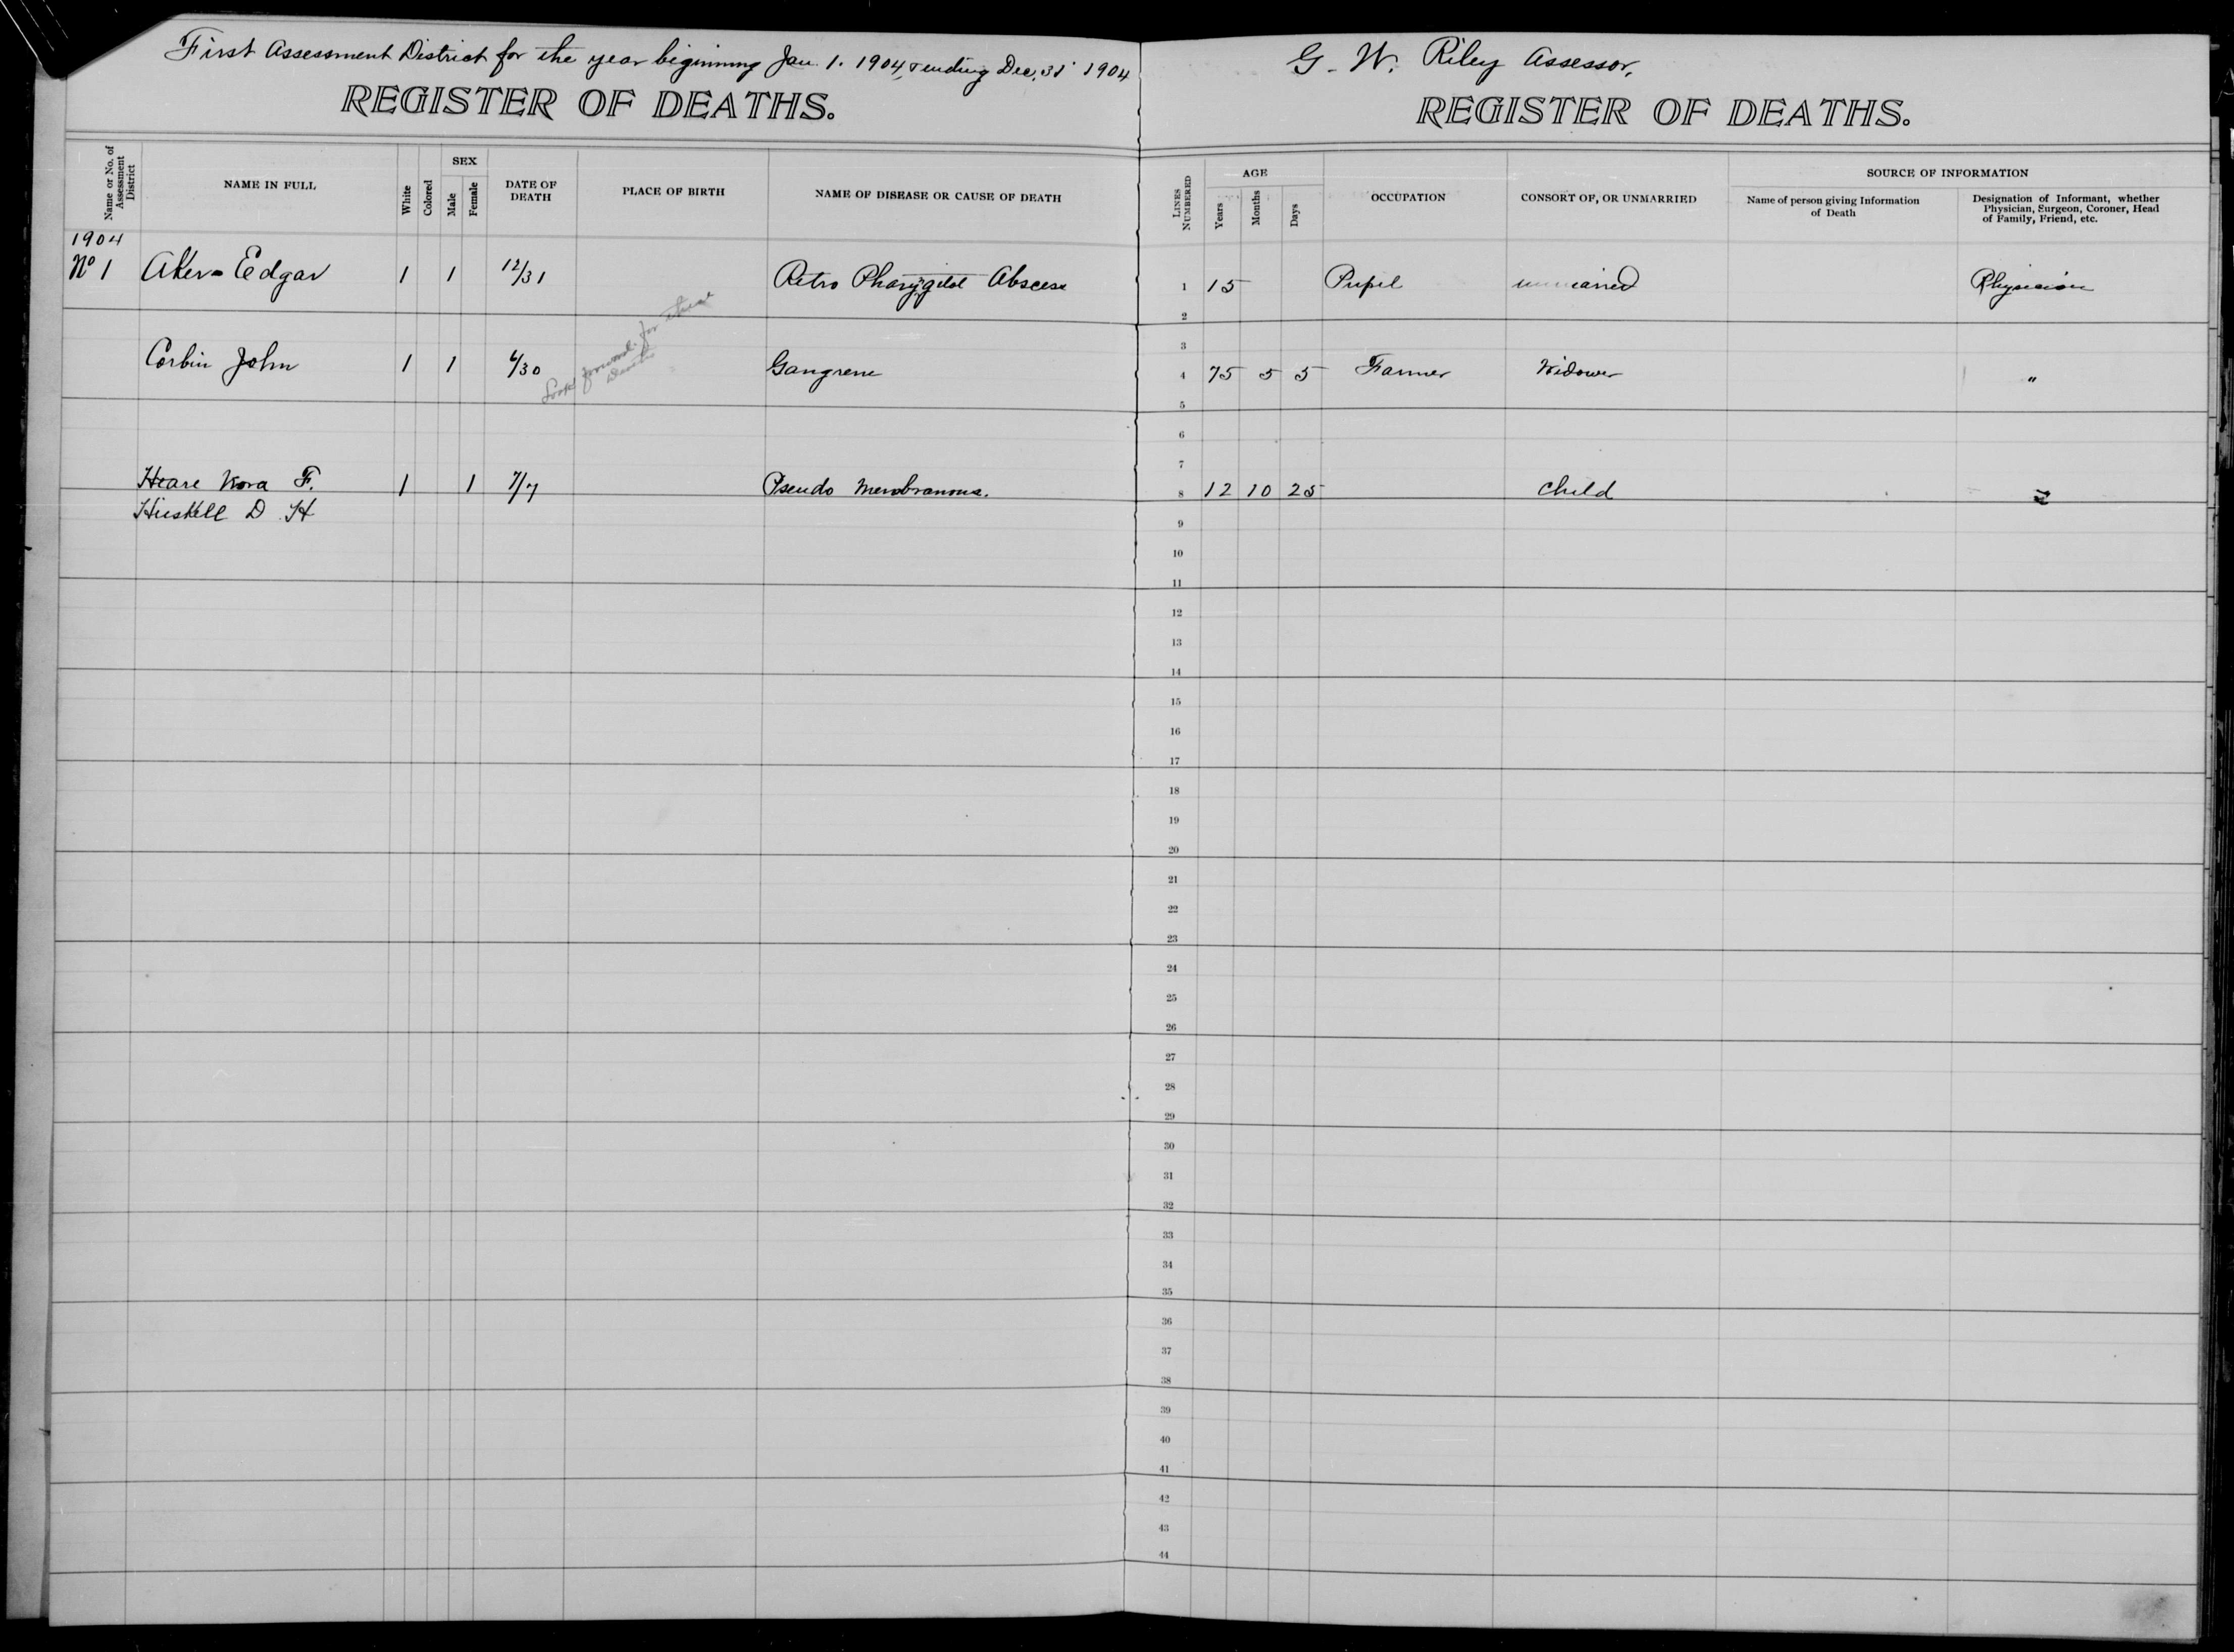 First Assessment District for the year beginning Jan. 1. 1904, & ending Dec, 31' 1904
REGISTER OF DEATHS.
Name or No. of Assessment District
NAME IN FULL
White
Colored
SEX
Male
Female
DATE OF DEATH
PLACE OF BIRTH
NAME OF DISEASE OR CAUSE OF DEATH
1904
No 1 Aker - Edgar 1 1 12/31 Retro Abscess
Look forward for these
Deaths
Corbin John 1 1 4/30 Gangrene
Heare Nora F. 1 1 7/7 Pseudo Membranous.
Huskell D H
G. W. Riley Assessor,
REGISTER OF DEATHS.
LINES NUMBERED
AGE
Years
Months
Days
OCCUPATION
CONSORT OF, OR UNMARRIED
SOURCE OF INFORMATION
Name of person giving Information of Death
Designation of Informant, whether Physician, Surgeon, Coroner, Head of Family, Friend, etc.
1 15 Pupil unmarried Physician
2
3
4 75 5 5 Farmer Widower "
5
6
7
8 12 10 25 child "
9
10
11
12
13
14
15
16
17
18
19
20
21
22
23
24
25
26
27
28
29
30
31
32
33
34
35
36
37
38
39
40
41
42
43
44